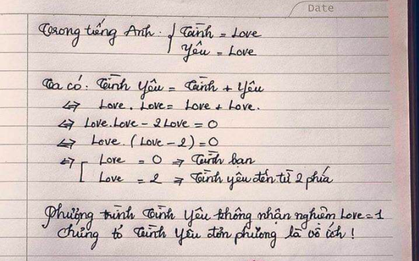 Date
Trong tiếng Anh. { Tình = Love
Yêu = Love
Ta có. Tình Yêu = Tình + Yêu
⇔ Love . Love = Love + Love.
⇔ Love.Love - 2Love = 0
⇔ Love. (Love - 2) = 0
⇔ [ Love = 0 ⇒ Tình bạn
Love = 2 ⇒ Tình yêu đến từ 2 phía
Phương trình Tình Yêu không nhận nghiệm Love = 1
Chứng tỏ Tình Yêu đơn phương là vô ích !